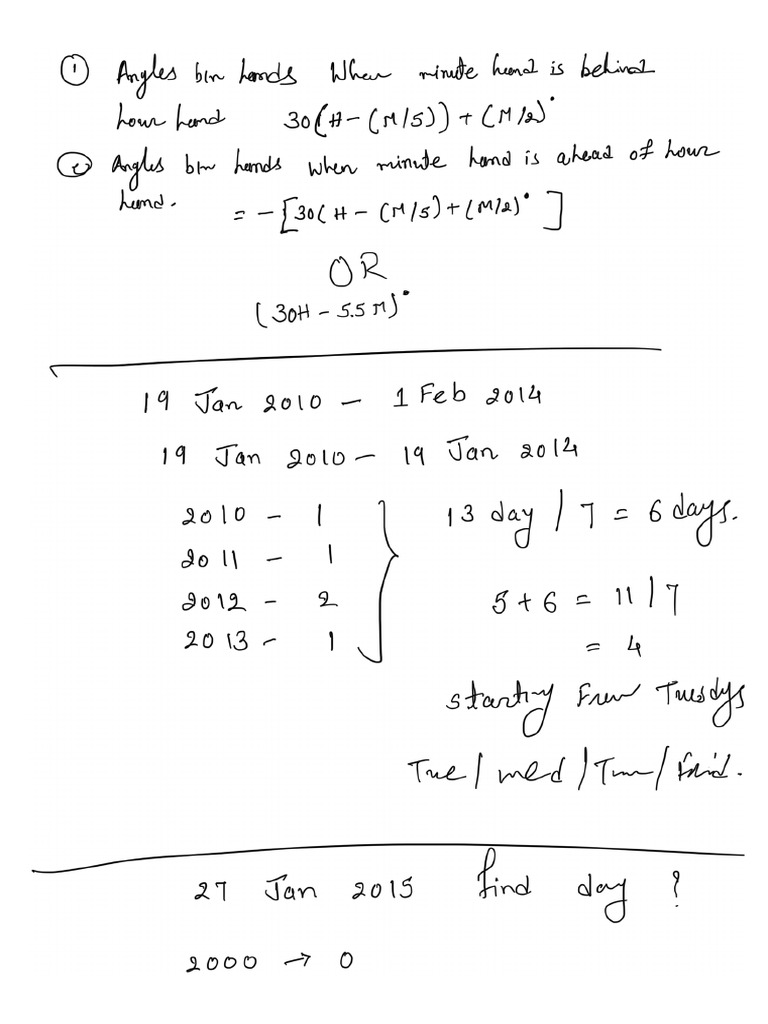 ① Angles btn hands When minute hand is behind
hour hand 30(H-(M/5))+(M/2)°
② Angles btw hands when minute hand is ahead of hour
hand. = -[30(H-(M/5)+(M/2)°]
OR
(30H-5.5M)°
19 Jan 2010 - 1 Feb 2014
19 Jan 2010 - 19 Jan 2014
2010 - 1
2011 - 1
2012 - 2
2013 - 1
13 day / 7 = 6 days.
5 + 6 = 11 / 7
= 4
starting From Tuesdys
Tue / wed / Thu / Frid.
27 Jan 2015 find day ?
2000 → 0